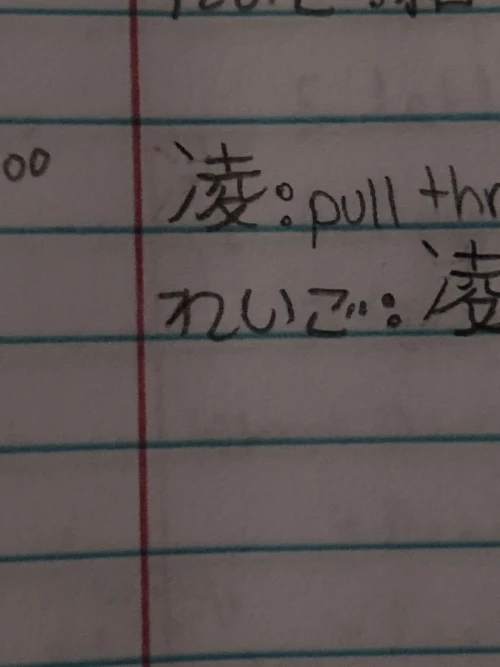 00
凌:pull thr
れいご:凌